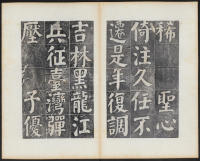 稀　聖心
倚注久任不
還是年復調
吉林黑龍江
兵征臺灣彈
壓　子優